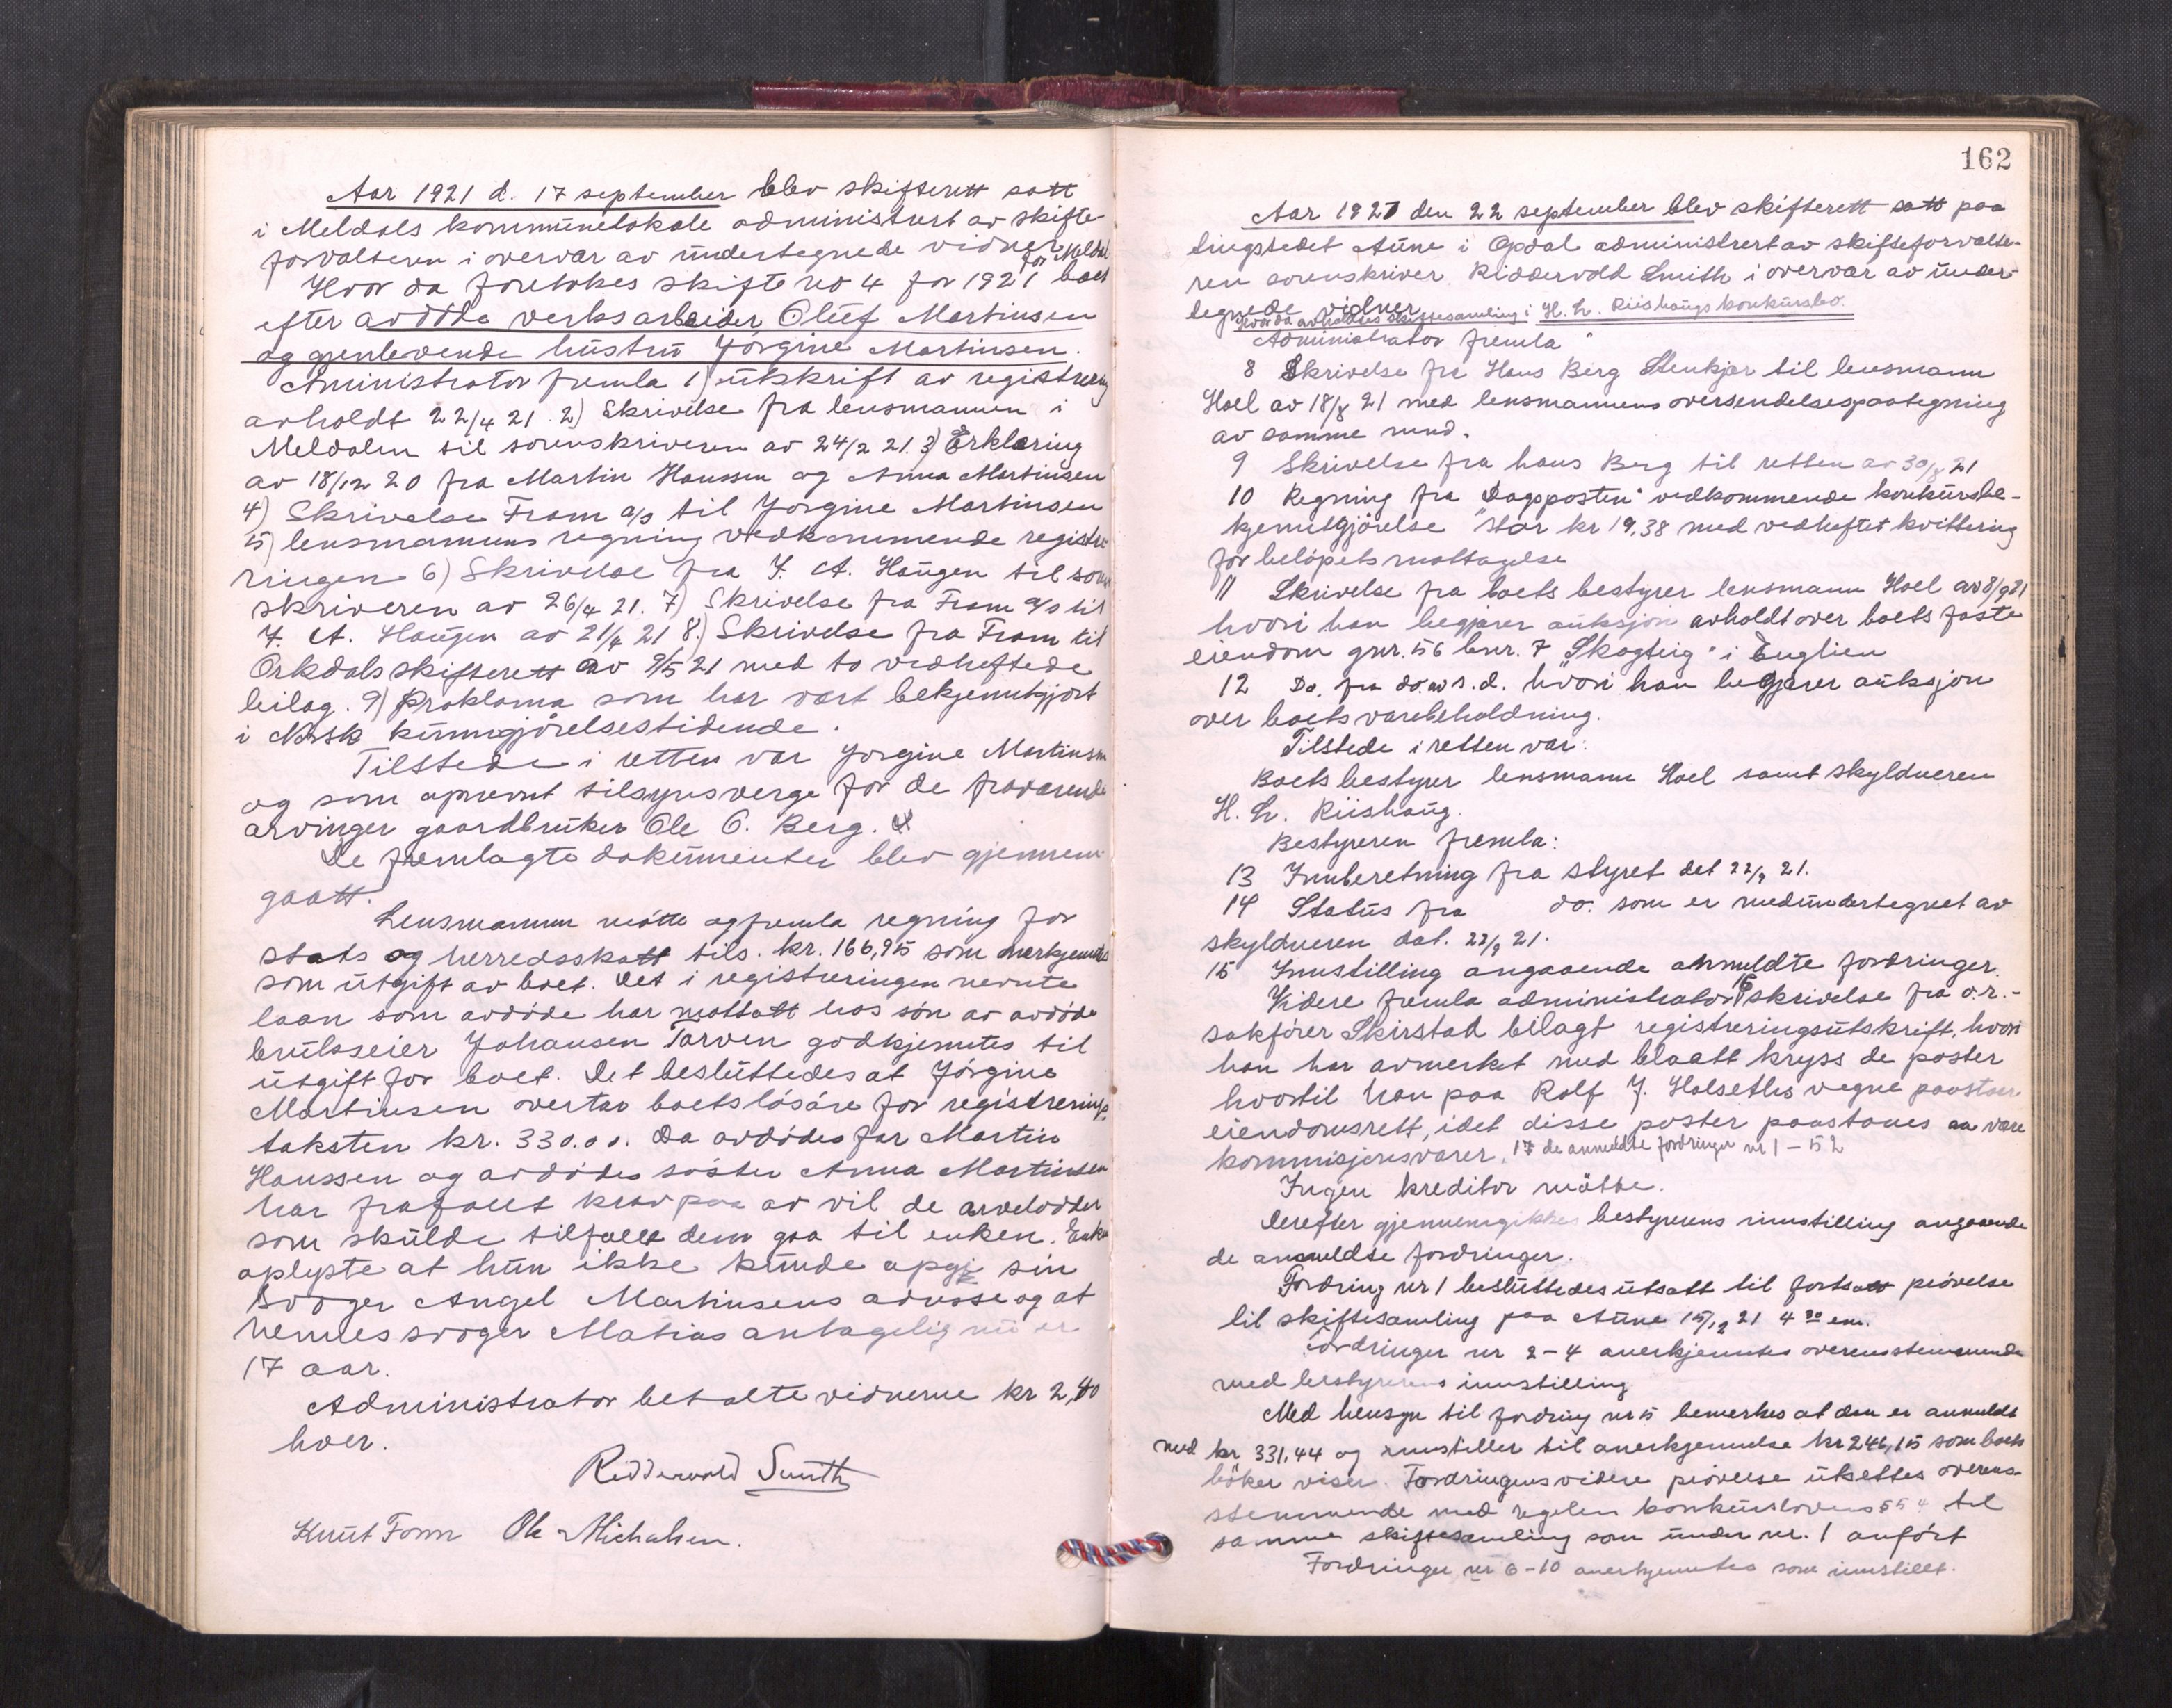 Aar 1921 d. 17 september blev skifterett satt
i Meldals kommunelokale administrert av skifte-
forvalteren i overvær av undertegnede vidner
for Meldal
Hvor da foretokes skifte no 4 for 1921 boet
efter avdöde verksarbeider Oluf Martinsen
og gjenlevende hustru Jörgine Martinsen.
Aministrator fremla 1) utskrift av registrering
avholdt 22/4 21. 2) Skrivelse fra lensmannen i
Meldalen til sorenskriveren av 24/2 21. 3) Erklæring
av 18/12 20 fra Martin Hanssen og Anna Martinsen
4) Skrivelse Fram a/s til Jorgine Martinsen
5) lensmannens regning vedkommende registre-
ringen 6) Skrivelse fra J. A. Haugen til soren
skriveren av 26/4 21. 7) Skrivelse fra Fram a/s til
J. A. Haugen av 21/4 21 8.) Skrivelse fra Fram til
Orkdals skifterett av 9/5 21 med to vedheftede
bilag. 9) Proklama som har vært bekjentgjort
i Norsk kunngjörelsestidende.
Tilstede i retten var Jorgine Martinsen
og som opnevnt tilsynsverge for de fraværende
arvinger gaardbruker Ole O. Berg.
De fremlagte dokumenter blev gjennem-
gaatt.
Lensmannen mötte og fremla regning for
stats og herredsskatt tils. kr. 166,95 som anerkjentes
som utgift av boet. Det i registreringen nevnte
laan som avdöde har mottatt hos sön av avdöde
bruksseier Johansen Tarven godkjentes til
utgift for boet. Det besluttedes at Jörgine
Martinsen overtar boets lösöre for registrerings
taksten kr. 330.00. Da avdödes far Martin
Hanssen og avdödes söster Anna Martinsen
har frafallt krav paa arv vil de arvelodder
som skulde tilfalle dem gaa til enken. Enken
oplyste at hun ikke kunde opgi sin
svoger Angel Martinsens adresse og at
hennes svoger Matias antagelig nu er
17 aar.
Administrator betalte vidnerne kr 2,40
hver.
Ridderwold Smith
Knut Form Ole Michalsen.
162
Aar 1921 den 22 september blev skifterett satt paa
tingstedet Aune i Opdal administrert av skifteforvalte-
ren sorenskriver Riddervold Smith i overvær av under-
tegnede vidner
Hvor da avholdtes skiftesamling i H. L. Riishaugs konkursbo.
Administrator fremla
8 Skrivelse fra Hans Berg Stenkjær til lensmann
Hoel av 18/8 21 med lensmannens oversendelsespaategning
av samme
9 Skrivelse fra hans Berg til retten av 30/8 21
10 Regning fra "Dagsposten" vedkommende konkursbe-
kjentgjörelse stor kr 19,38 med vedheftet kvittering
for belöpets mottagelse
11 Skrivelse fra boets bestyrer lensmann Hoel av 8/9 21
hvori han begjærer auksjon avholdt over boets faste
eiendom gnr. 56 bnr. 7 "Skogteig" i Englien
12 Do. fra do. av s.d. hvori han begjærer auksjon
over boets varebeholdning.
Tilstede i retten var:
Boets bestyrer lensmann Hoel samt skyldneren
H. L. Riishaug.
Bestyreren fremla:
13 Innberetning fra styret det 22/9 21.
14 Status fra do. som er medundertegnet av
skyldneren dat. 22/9 21.
15 Innstilling angaaende anmeldte fordringer.
Videre fremla administrator 16 skrivelse fra o.r.-
sakförer Skirstad bilagt registreringsutskrift, hvori
han har avmerket med blaatt kryss de poster
hvortil han paa Rolf J. Halseths vegne paastaar
eiendomsrett, idet disse poster paastaaes aa være
kommisjonsvarer. 17 de anmeldte fordringer nr 1 - 52
Ingen kreditor mötte.
Derefter gjennemgikkes bestyrerens innstilling angaaende
de anmeldte fordringer.
Fordring nr 1 besluttedes utsatt til fortsatt prövelse
til skiftesamling paa Aune 15/12 21 4 30 em.
Fordringer nr 2-4 anerkjentes overensstemmende
med bestyrerens innstilling
Med hensyn til fordring nr 5 bemerkes at den er anmeldt
med kr 331,44 og innstiller til anerkjennelse kr 246,15 som boets
böker viser. Fordringens videre prövelse utsettes overens-
stemmende med regelen konkurslovens § 54 til
samme skiftesamling som under nr. 1 anfört
Fordringer nr 6-10 anerkjentes som innstillt.